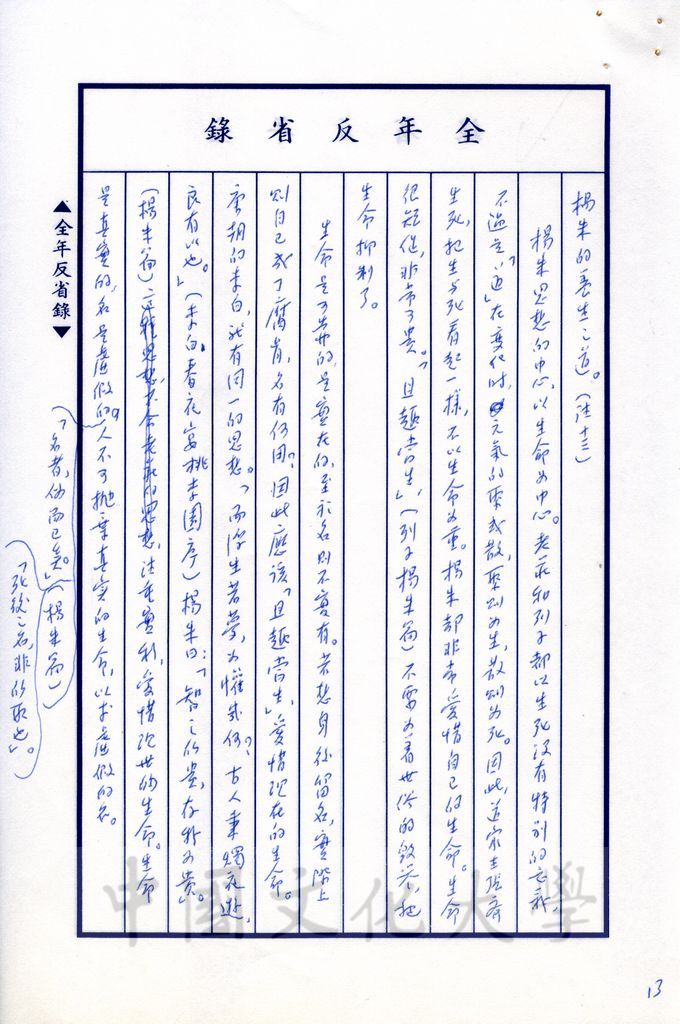 全年反省錄
楊朱的養生之道。(注十三)
楊朱思想的中心,以生命為中心。老莊和列子都以生死沒有特別的意義,
不過是「道」在變化時,元氣的聚或散,聚則為生,散則為死。因此,道家主張齊
生死,把生與死看起一樣,不以生命為重。楊朱卻非常愛惜自己的生命。生命
很短促,非常可貴。「且趣當生」,(列子楊朱篇)不要為著世俗的毀譽,把
生命抑制了。
生命是可貴的,是實在的,至於名則不實有。若想身後留名,實際上
則自己成了腐骨,名有何用?因此應該「且趣當生」,愛惜現在的生命。
唐朝的李白,就有同一的思想。「而浮生若夢,為懽幾何?古人秉燭夜遊,
良有以也。」(李白,春夜宴桃李園序)楊朱曰:「智之所貴,存我為貴。」
(楊朱篇)這種思想,不合老莊的思想,注重實利,愛惜現世的生命。生命
是真實的,名是虛假的,人不可拋棄真實的生命,以求虛假的名。
「名者,偽而已矣。」(楊朱篇)
「死後之名,非所取也」。
▲全年反省錄▼
13
中國文化大學